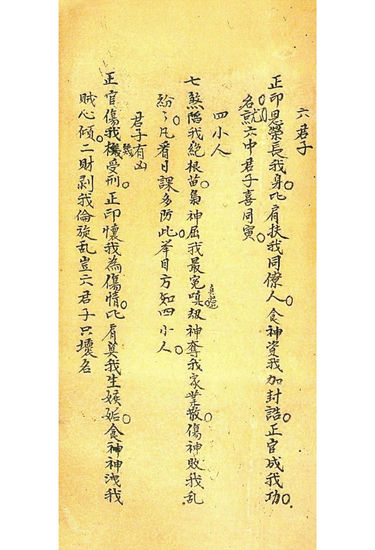 六君子
正印恩榮長我身。比肩扶我同僚人。食神資我加封誥。正官成我功。
名就六中君子喜同寅。
四小人
七煞陷我絕根苗。梟神屈我最冤嗔。刼神奪我家業散。傷神敗我乱
紛々。凡看日課多防此。举目方知四小人。
君子有凶
正官傷我機受刑。正印懷我為傷情。比肩莫我生嫉妬。食神神洩我
賊心傾。二財剥我倫旋乱豈六君子只壞名